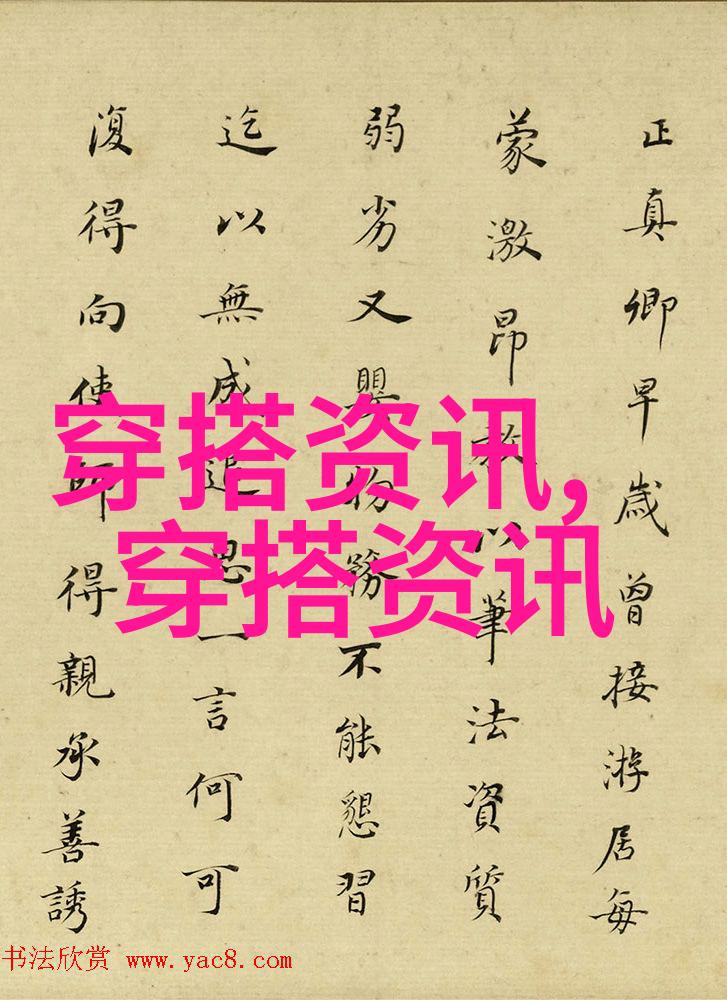 正真卿早歲曾接游居每
蒙激昂教以筆法資質
弱劣又嬰物務不能懇習
迄以無成追思一言何可
復得向使師得親承善誘
穿搭资讯,
穿搭资讯
书法欣赏 www.yac8.com